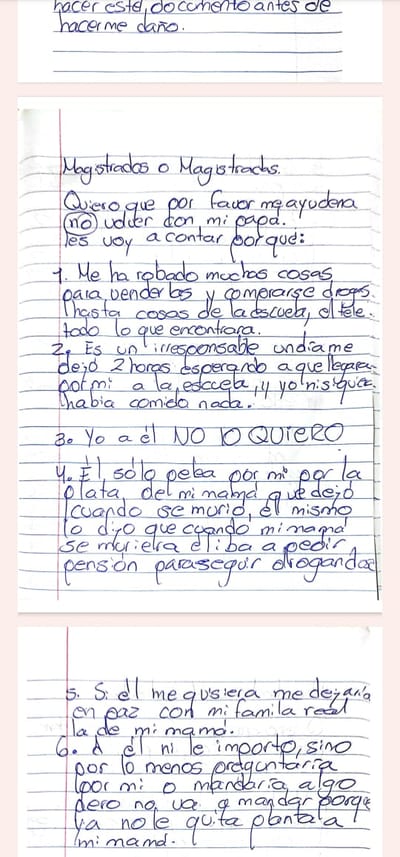 hacer este documento antes de
hacerme daño.
Magistrados o Magistradas.
Quiero que por favor me ayuden a
no volver con mi papá.
les voy a contar por qué:
1. Me ha robado muchas cosas
para venderlas y comprarse drogas.
hasta cosas de la escuela, el tele.
todo lo que encontrara.
2. Es un irresponsable un día me
dejó 2 horas esperando a que llegara
por mi a la escuela, y yo ni siquiera
había comido nada.
3. Yo a él NO lO QUIERO
4. Él sólo pelea por mi por la
plata, del mi mamá que dejó
cuando se murió, él mismo
lo dijo que cuando mi mamá
se muriera él iba a pedir
pensión para seguir drogandose
5. Si él me quisiera me dejaría
en paz con mi famila real
la de mi mamá.
6. A él ni le importo, sino
por lo menos preguntaría
por mi o mandaría algo
pero no va a mandar porque
ya no le quita plantala
mi mamá.